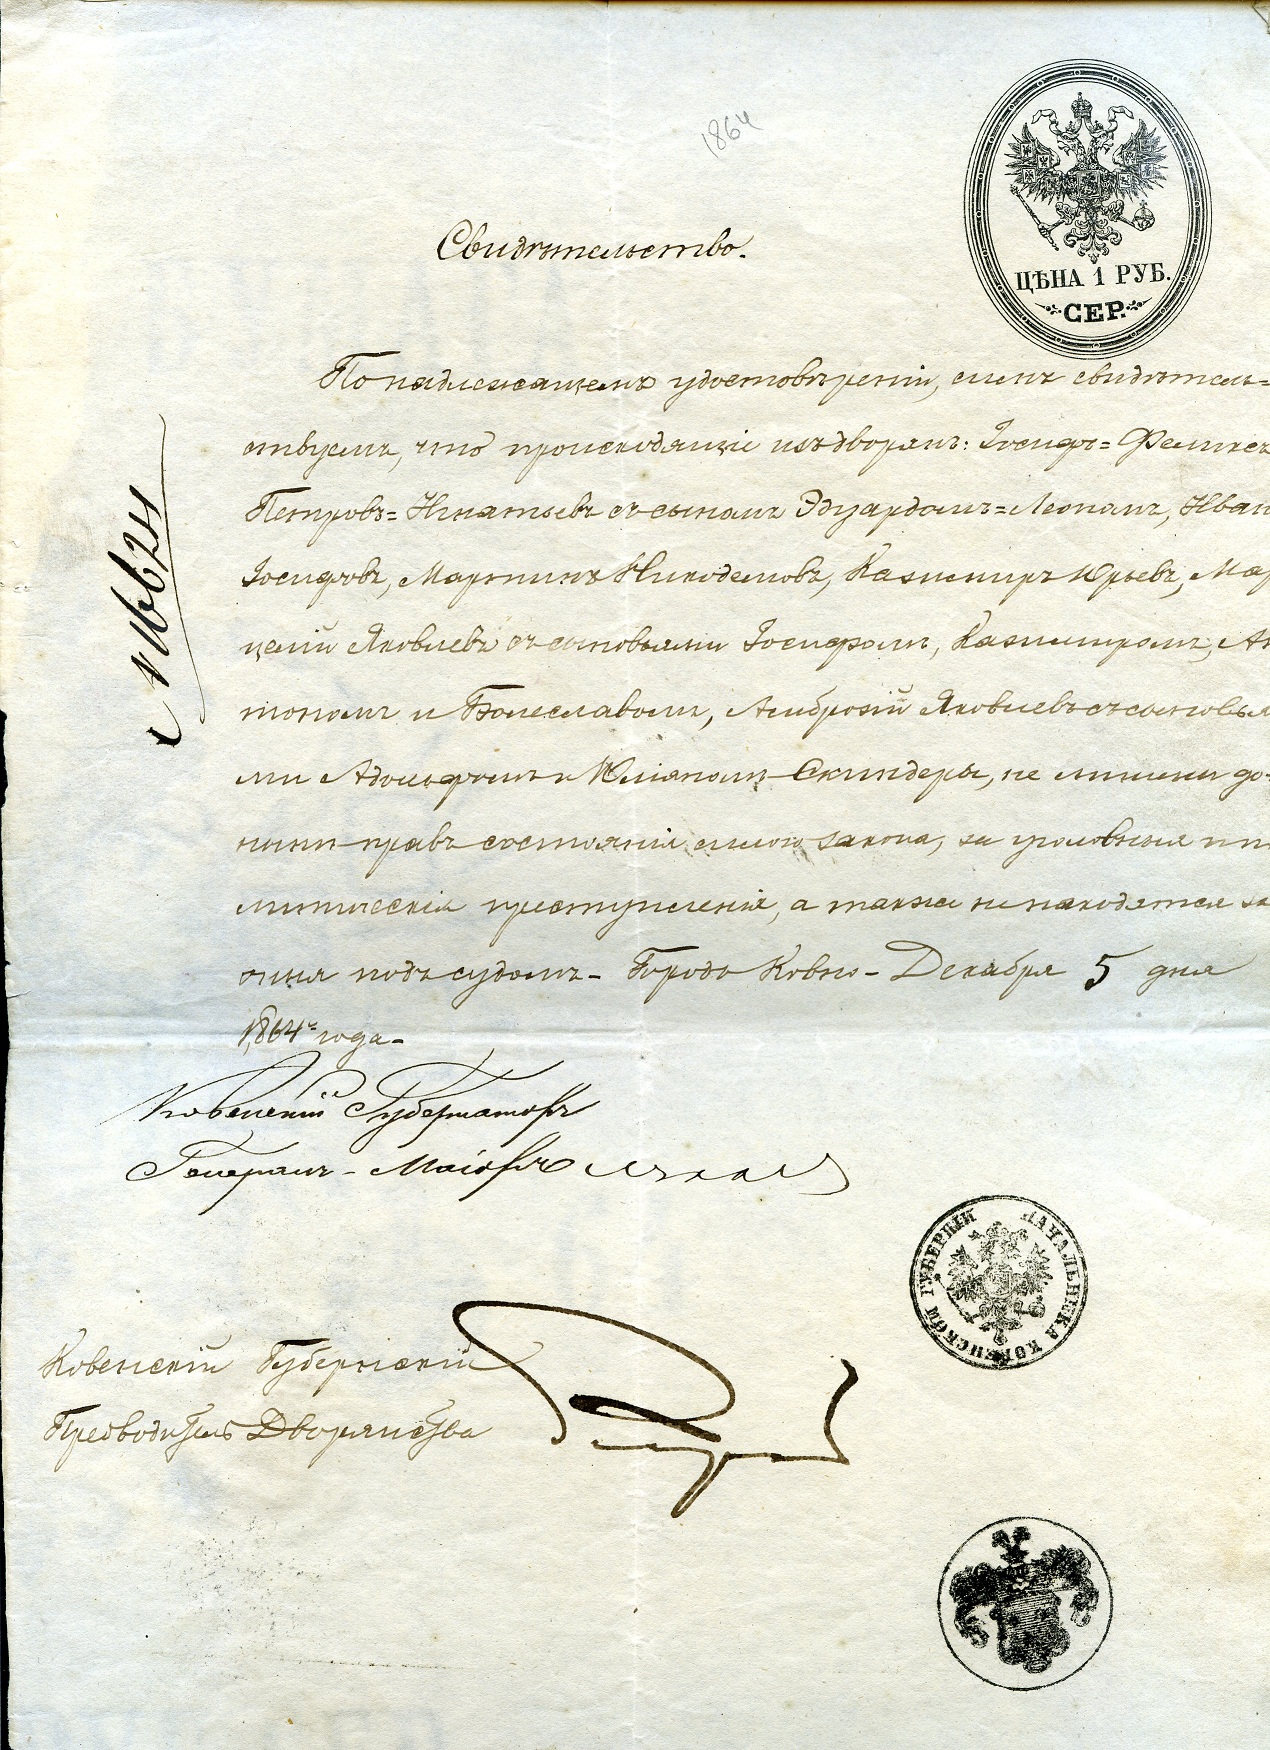 1864
ЦѢНА 1 РУБ.
СЕР.
Свидѣтельство.
По надлежащемъ удостовѣреніи, симъ свидѣтель=
ствуемъ, что происходящіе изъ дворянъ: Іосифъ=Феликсъ
Петровъ=Игнатьевъ съ сыномъ Эдуардомъ=Леономъ, Иван
Іосифовъ, Мартинъ Никодемовъ, Казимиръ Юрьевъ, Мар
целій Яковлевъ съ сыновьями Іосифомъ, Казимиромъ, Ан
тономъ и Болеславомъ, Амброзій Яковлевъ съ сыновья
ми Адольфомъ и Юліяномъ Скиндеры, не лишены до=
нынѣ правъ состоянія силою закона, за уголовныя и по
литическія преступленія, а также не находятся за
оныя подъ судомъ- Городъ Ковно- Декабря 5 дня
1864 года-
№ 6624
Ковенскій Губернаторъ
Генералъ-Маіоръ
НАЧАЛЬНИКА КОВЕНСКОЙ ГУБЕРНІИ
Ковенскій Губернскій
Предводитель Дворянства